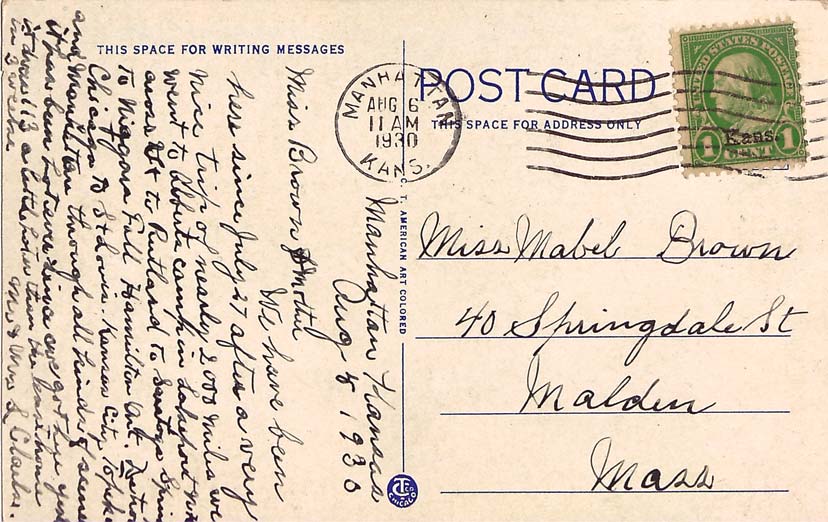 THIS SPACE FOR WRITING MESSAGES
POST CARD
THIS SPACE FOR ADDRESS ONLY
MANHATTAN
AUG 6
11 AM
1930
KANS.
UNITED STATES POSTAGE
Kans.
1 CENT 1
Miss Mabel Brown
40 Springdale St
Malden
Mass
C. T. AMERICAN ART COLORED
CHICAGO
Manhattan Kansas
Aug 5 1930
Miss Brown & Mother
We have been
here since July 27 after a very
nice trip of nearly 2000 miles we
went to camp in
across Vt to Rutland to Saratoga Spring
to Niagara Fall Hamilton Ont. Detroi
Chicago to St Louis. Kansas City Topeka
and Manhattan through all kinds of scene
it has been hot ever since we got here
it was 113 a little hotter than home
in 3 weeks
Mr & Mrs L Clarke.